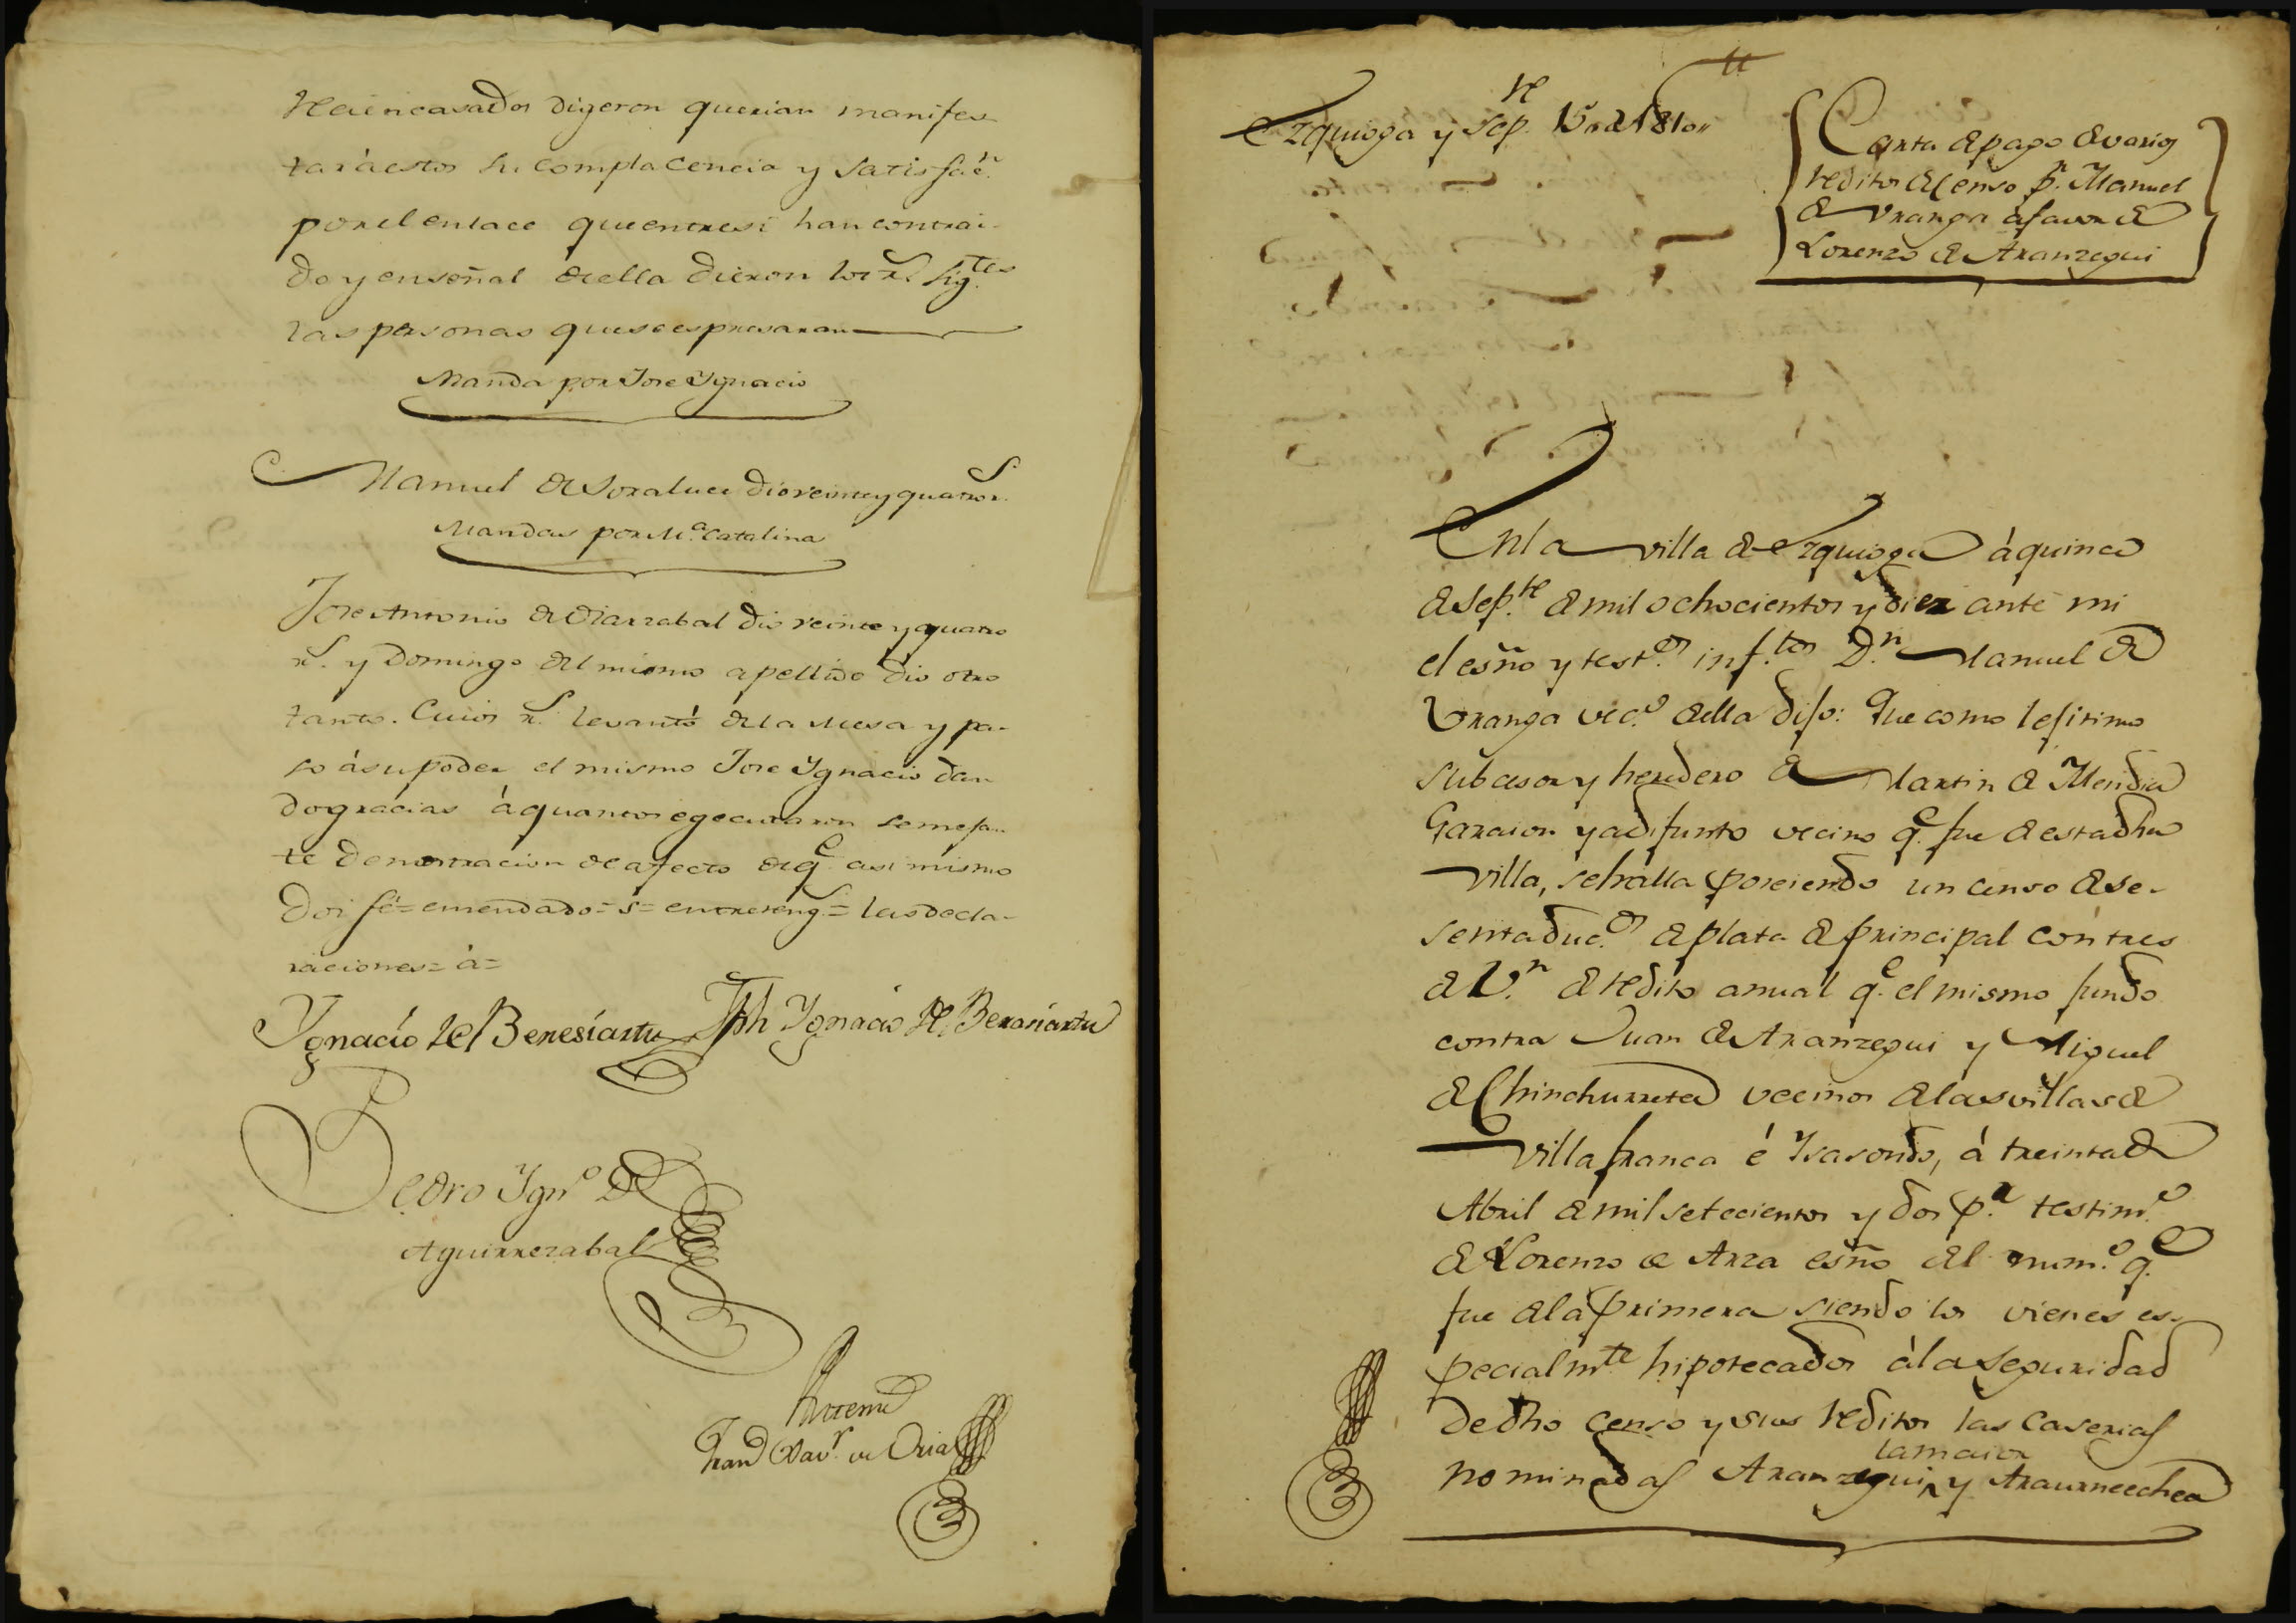 Reciencasados digeron querian manifes-
tar à estos su complacencia y satisfac.n
por el enlace que entre si han contrai-
do y en señal de ella dieron los r.s sig.tes
las personas que se espresaran
Manda por Jose Ygnacio
Manuel de Soraluce dio veinte y quatro r.s
Mandas por M.a Catalina
Jose Antonio de Olarzabal dio veinte y quatro
r.s y Domingo del mismo apellido dio otro
tanto. Cuios r.s levantó de la Mesa y pa-
so à su poder el mismo Jose Ygnacio dan-
do gracias à quantos egecutaron semejan-
te demostracion de afecto de q.e asi mismo
Doi fé = emendado = s = entrereng.s = las decla-
raciones = à =
Ygnacio de Beresiartu Jph Ygnacio de Berasiartu
Pedro Ygn.o De
Aguirrezabal
Ante mi
Fran.co Xav.r de Oria
Ezquioga y Sep.re 15,, de 1810,,
Carta de pago de varios
reditos de censo p.r Manuel
de Uranga à favor de
Lorenzo de Aranzegui
En la villa de Ezquioga à quince
de Sep.re de mil ochocientos y diez ante mi
el esño y test.os inf.tos D.n Manuel de
Uranga vec.o de ella dijo: Que como lejitimo
subcesor y heredero de Martin de Mendia
Garaion ya difunto vecino q.e fue de esta dha
villa, se halla poseiendo un censo de se-
senta duc.os de plata de principal con tres
de V.n de redito anual q.e el mismo fundo
contra Juan de Aranzegui y Miguel
de Chinchurreta vecinos de las villas de
Villafranca é Ysasondo, à treinta de
Abril de mil setecientos y dos p.r testim.o
de Lorenzo de Arza esño del num.o q.e
fue de la primera siendo los vienes es-
pecialm.te hipotecados à la seguridad
de dho censo y sus reditos las caserias
la maior
nominadas Aranzegui, y Araurneechea